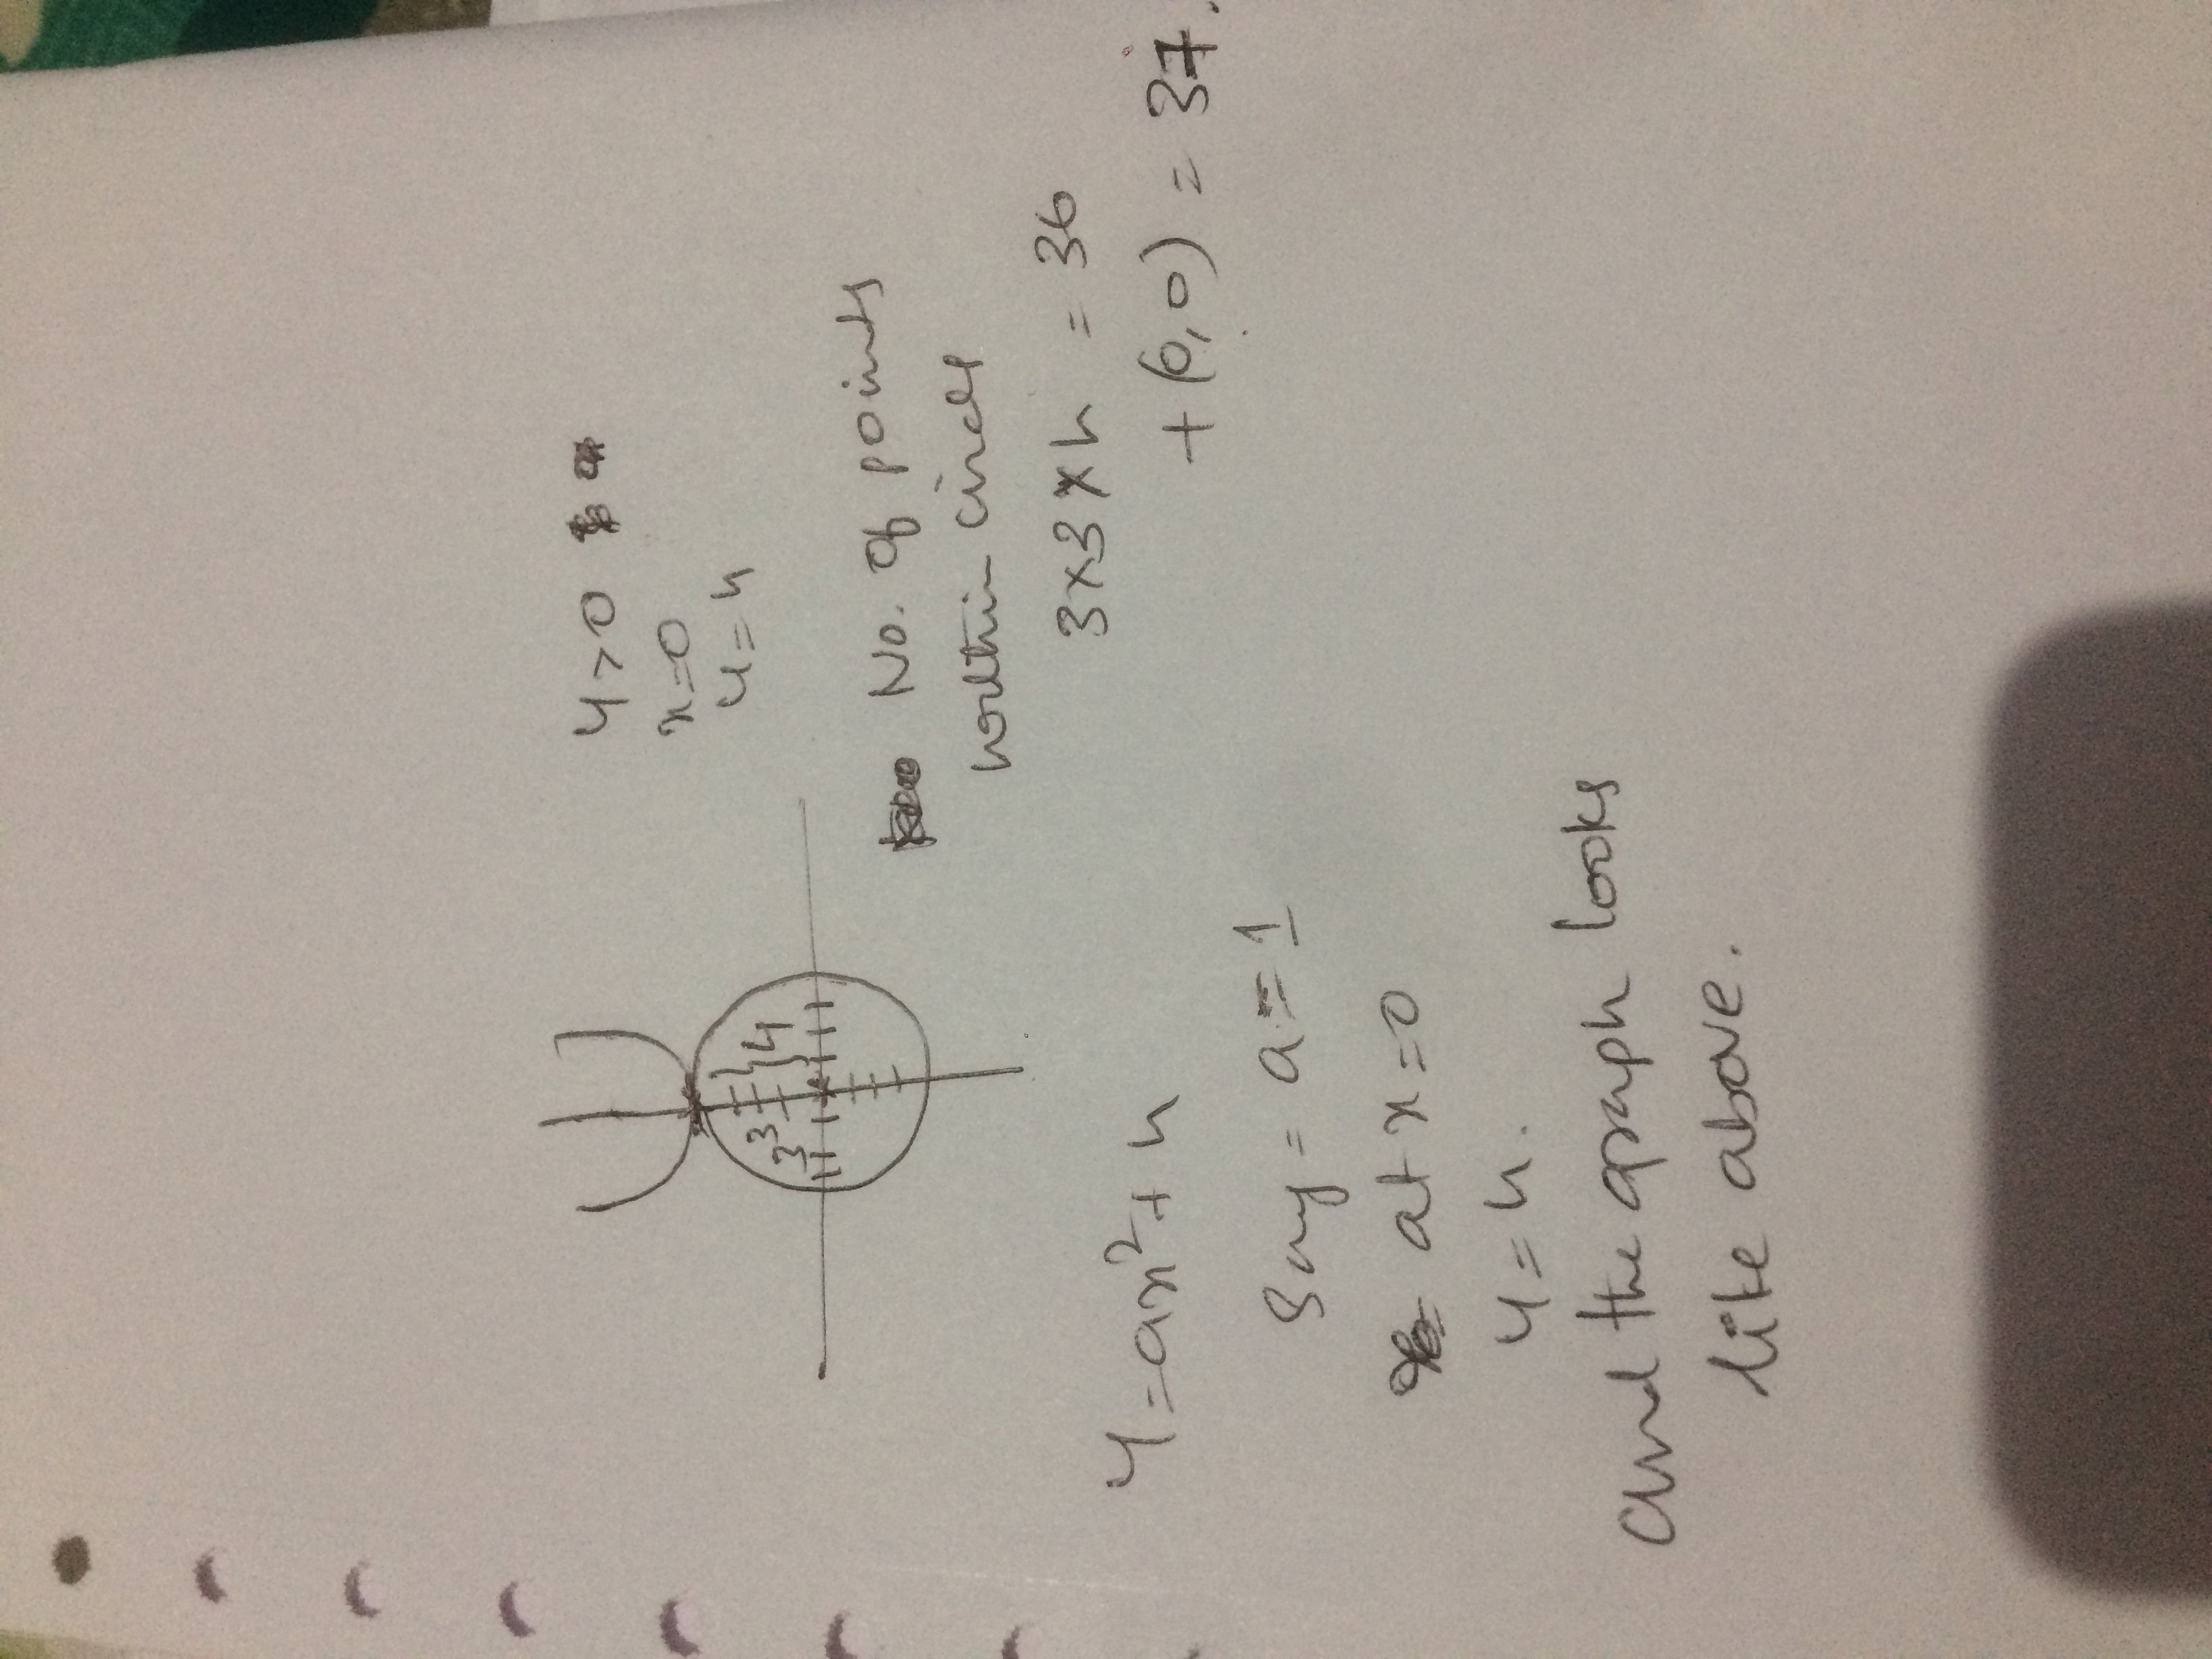 y > 0
x = 0
y = 4
3 3 1 4
No. of points
within circle
3 x 3 x 4 = 36
+ (0,0) = 37.
y = ax² + 4
Say = a = 1
at x = 0
y = 4.
and the graph looks
like above.